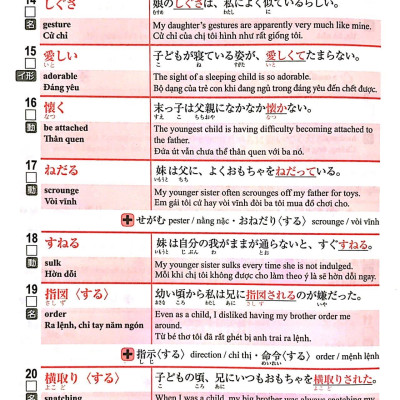 14 しぐさ 娘のしぐさは、私によく似ているらしい。
名 gesture My daughter's gestures are apparently very much like mine.
Cử chỉ Cử chỉ của chị tôi hình như rất giống tôi.
15 愛しい 子どもが寝ている姿が、愛しくてたまらない。
いと こ ね すがた いと
イ形 adorable The sight of a sleeping child is so adorable.
Đáng yêu Bộ dạng của trẻ con khi đang ngủ trong đáng yêu đến chết được.
16 懐く 末っ子は父親になかなか懐かない。
なつ すえ こ ちちおや なつ
動 be attached The youngest child is having difficulty becoming attached to
Thân quen the father.
Đứa út vẫn chưa thể thân quen với ba nó.
17 ねだる 妹は父に、よくおもちゃをねだっている。
いもうと ちち
動 scrounge My younger sister often scrounges off my father for toys.
Vòi vĩnh Em gái tôi cứ hay vòi vĩnh đòi ba tôi mua đồ chơi cho.
+ せがむ pester / nằng nặc・おねだり〈する〉 scrounge / vòi vĩnh
18 すねる 妹は自分の我がままが通らないと、すぐすねる。
いもうと じぶん わ とお
動 sulk My younger sister sulks every time she is not indulged.
Hờn dỗi Mỗi khi chị tôi không được cho làm theo ý là sẽ hờn dỗi ngay.
19 指図〈する〉 幼い頃から私は兄に指図されるのが嫌だった。
さしず おさな ころ わたし あに さしず いや
名 order Even as a child, I disliked having my brother order me
Ra lệnh, chỉ tay năm ngón around.
Từ bé thơ tôi đã rất ghét bị anh trai ra lệnh.
+ 指示〈する〉 direction / chỉ thị・命令〈する〉 order / mệnh lệnh
しじ めいれい
20 横取り〈する〉 子どもの頃、兄にいつもおもちゃを横取りされた。
よこど こ ころ あに よこど
名 snatching When I was a child, my big brother was always snatching my